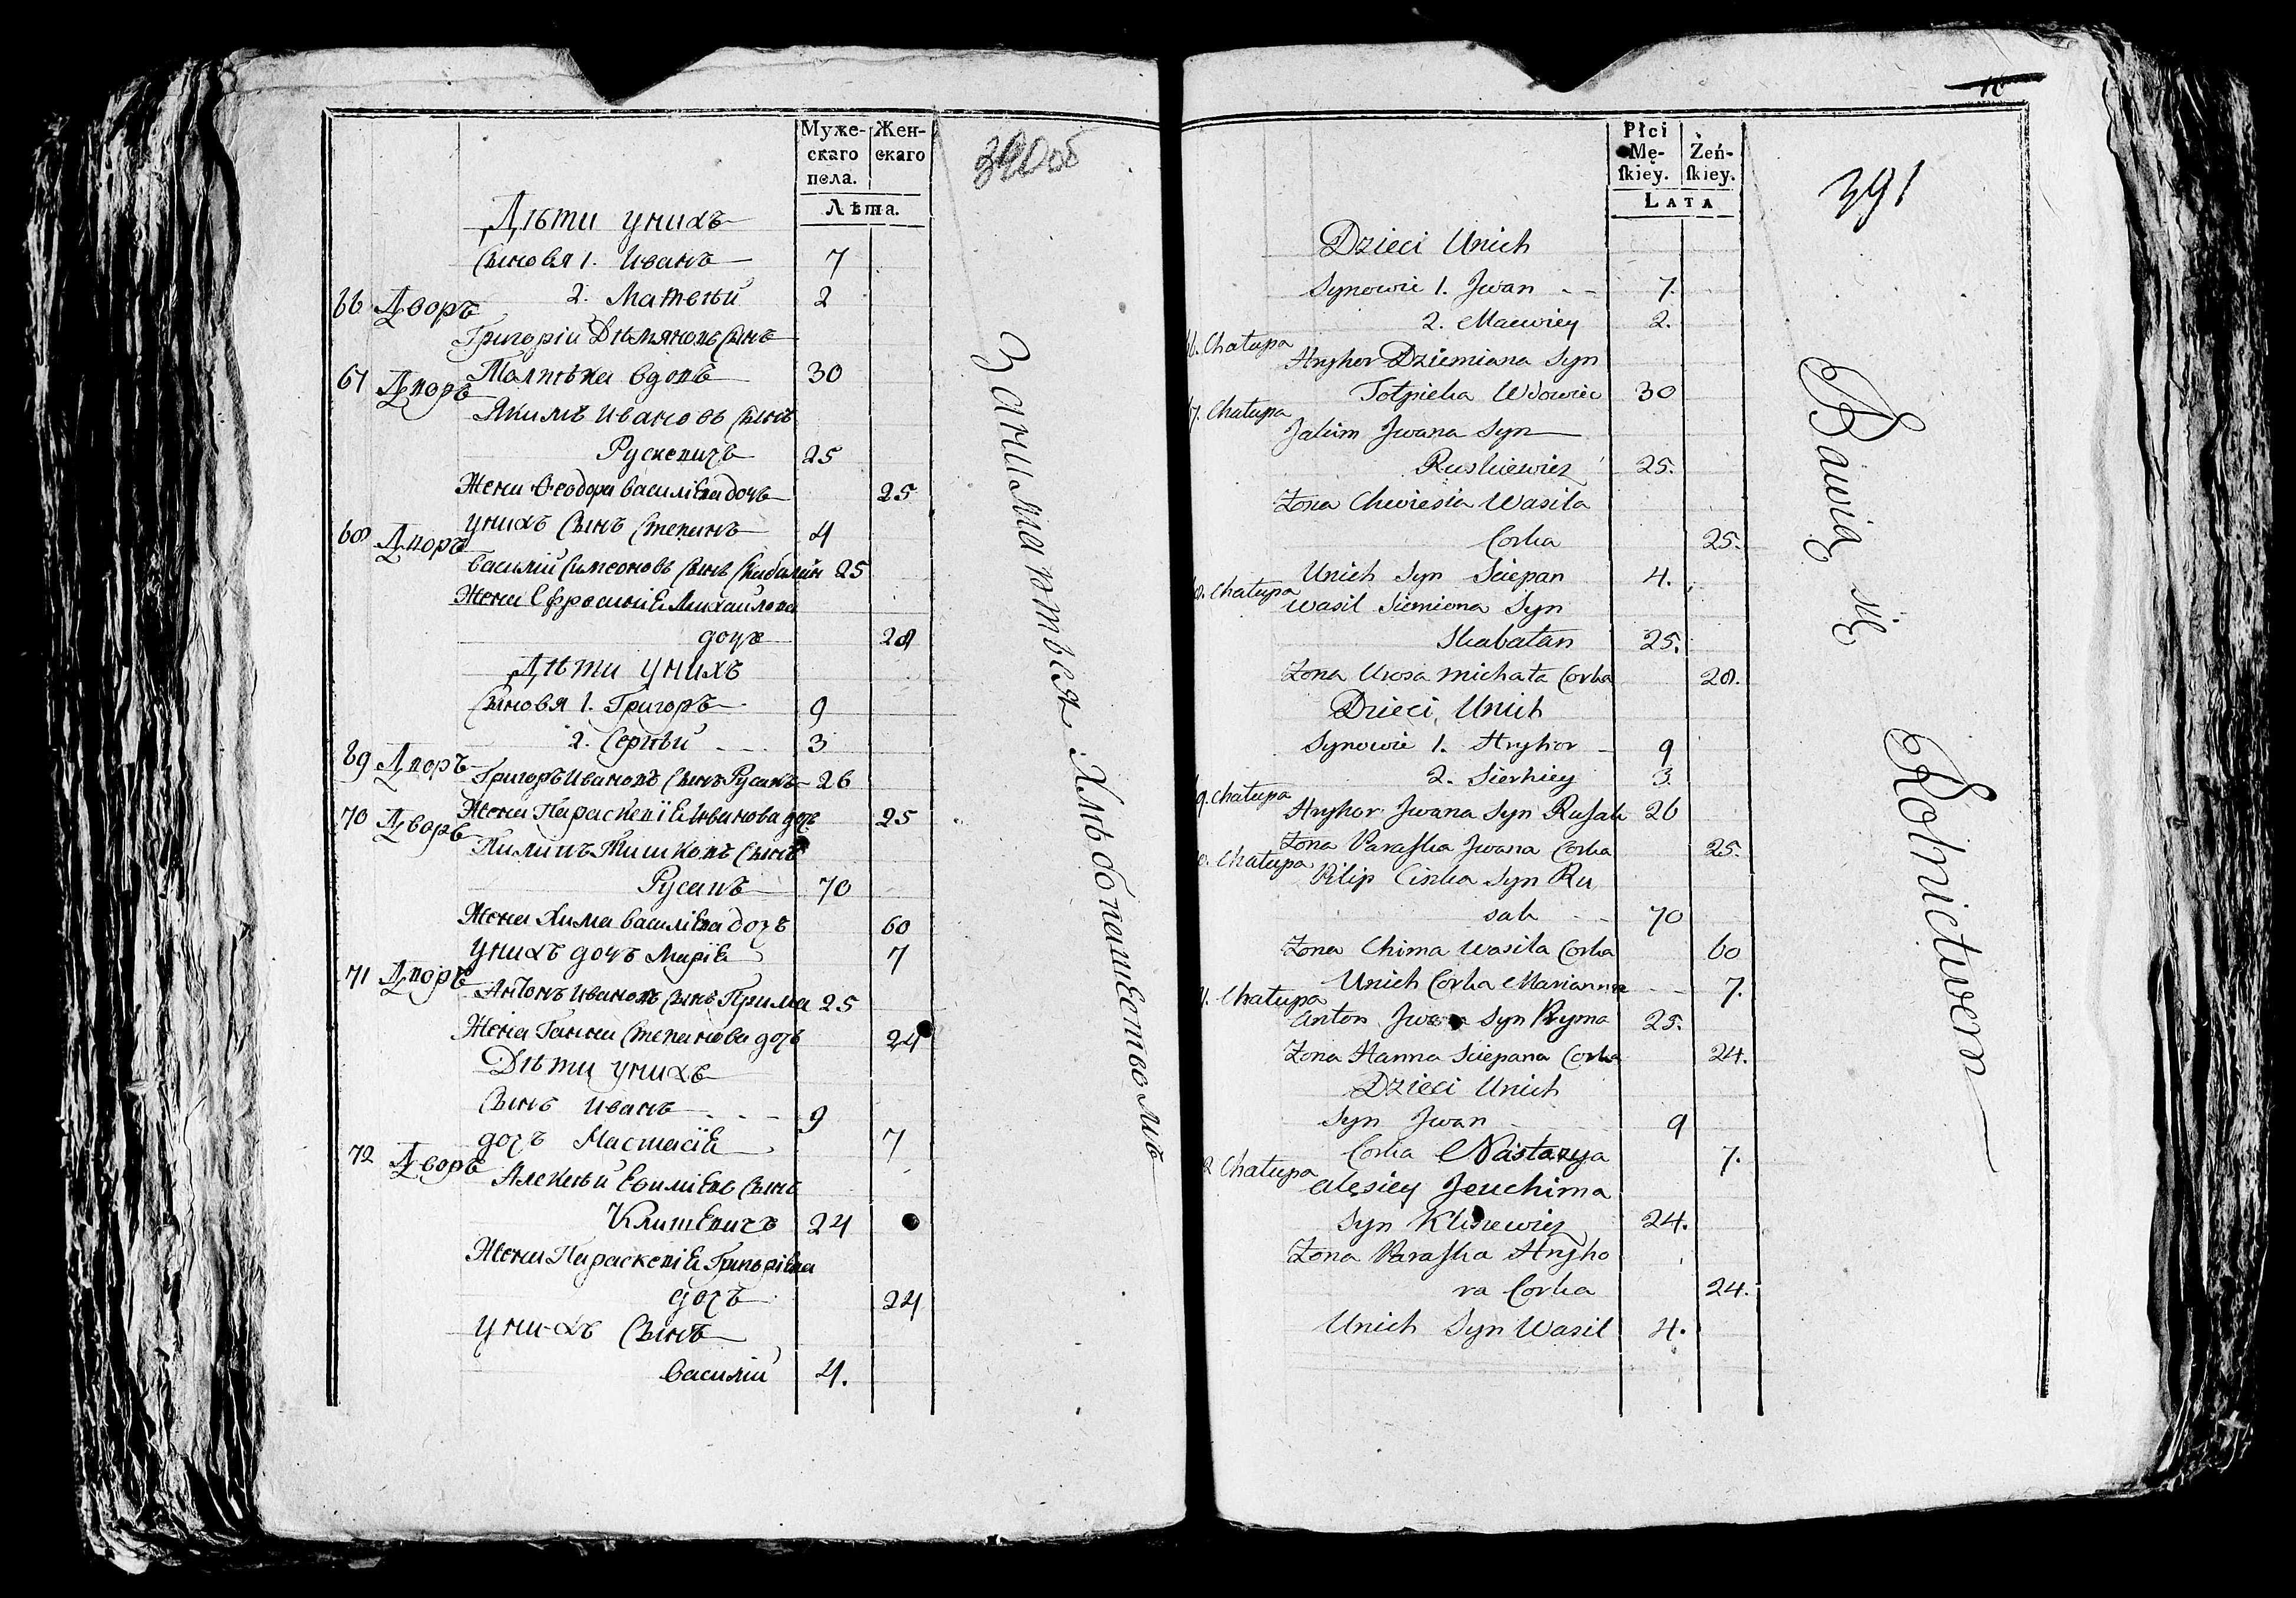 Муже-
скаго
пола.
Жен-
скаго
Лѣта.
390об
Дѣти унихъ
Сыновя 1. Иванъ 7
2. Матвѣй 2
66 Дворъ
Григорій Дѣмяновъ Сынъ
Толпѣка вдовъ 30
67 Дворъ
Якимъ Ивановъ Сынъ
Рускевичъ 25
Жена Феодора Василіева дочь 25
унихъ Сынъ Степанъ 4
68 Дворъ
Василій Симеоновъ Сынъ Скабалан 25
Жена Ефросиніе Михайлова
дочь 28
Дѣти унихъ
Сыновя 1. Григоръ 9
2. Сергѣй 3
69 Дворъ
Григоръ Ивановъ Сынъ Русакъ 26
Жена Параскевіе Иванова дочь 25
70 Дворъ
Пилипъ Тишковъ Сынъ
Русакъ 70
Жена Хима Василіева дочь 60
унихъ дочъ Маріе 7
71 Дворъ
Антонъ Ивановъ Сынъ Прима 25
Жена Ганна Степанова дочь 24
Дѣти унихъ
Сынъ Иванъ 9
дочъ Настасіе 7
72 Дворъ
Алексѣй Евиміевъ Сынъ
Клишевичъ 24
Жена Параскевіе Григоріева
дочъ 24
унихъ Сынъ
Василій 4.
Занимаются Хлѣбопашествомъ
Płci
Mę-
skiey.
Żeń-
skiey.
LATA
391
Dzieci Unich
Synowie 1. Jwan 7.
2. Maciwiey 2.
66. Chałupa
Hryhor Dziemiana Syn
Tołpieka Wdowiec 30
67. Chałupa
Jakim Jwana Syn
Ruskiewicz 25.
Żona Chwiesia Wasila
Corka 25.
Unich Syn Sciepan 4.
68. Chałupa
Wasil Siemiona Syn
Skabałan 25.
Żona Urosa Michała Corka 28.
Dzieci Unich
Synowie 1. Hryhor 9
2. Sierhiey 3
69. Chałupa
Hryhor Jwana Syn Rusak 26
Żona Paraska Jwana Corka 25.
70. Chałupa
Pilip Ciszka Syn Ru
sak 70
Żona Chima Wasila Corka 60
Unich Corka Marianna 7.
71. Chałupa
Anton Jwana Syn Pryma 25.
Żona Hanna Sciepana Corka 24.
Dzieci Unich
Syn Jwan 9
Corka Nastazya 7.
72 Chałupa
Alesiey Jeuchima
Syn Kliszewicz 24.
Żona Paraska Hryho
ra Corka 24.
Unich Syn Wasil 4.
Bawią się Rolnictwem